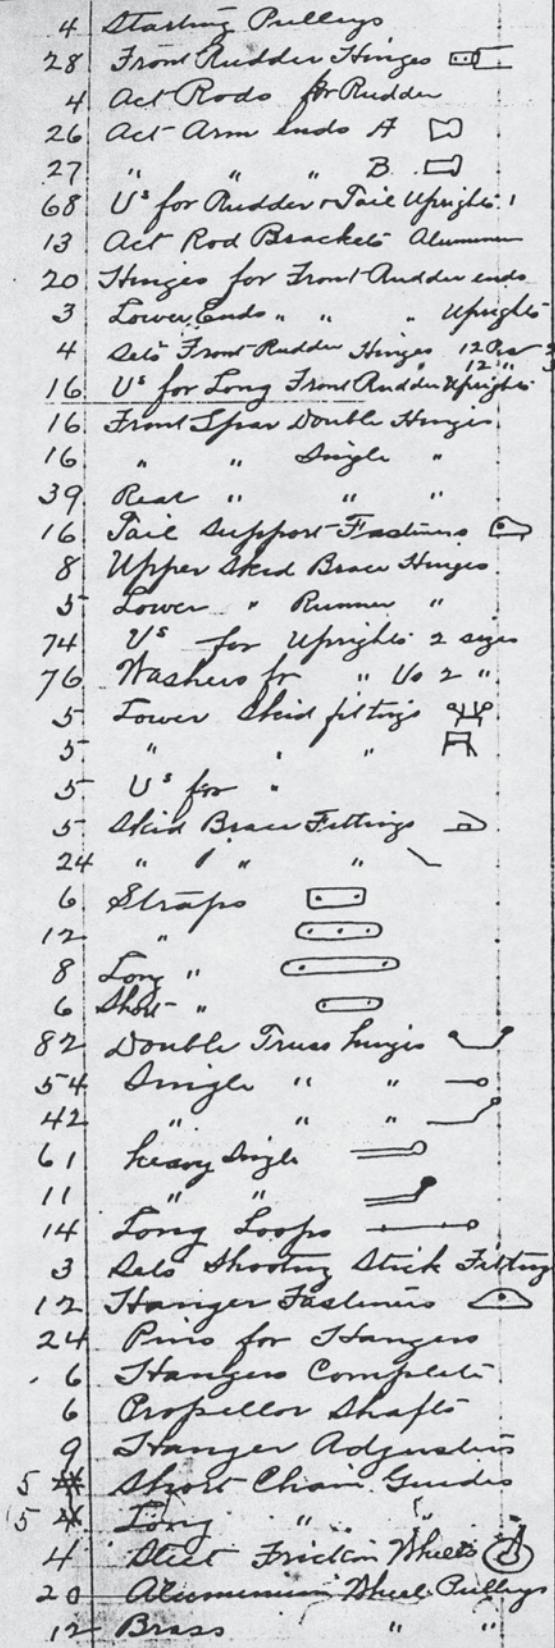 4 Starting Pulleys
28 Front Rudder Hinges
4 Act Rods for Rudder
26 Act Arm ends A
27 " " " B
68 Us for Rudder + Tail Uprights
13 Act Rod Brackets Aluminum
20 Hinges for Front Rudder ends
3 Lower Ends " " " Uprights
4 Sets Front Rudder Hinges 12 Per
12 "
16 Us for Long Front Rudder Uprights
16 Front Spar Double Hinges
16 " " Single "
39 Rear " " "
16 Tail Support Fastiners
8 Upper Skid Brace Hinges
5 Lower " Runner "
74 Us for Uprights 2 sizes
76 Washers fr " Us 2 "
5 Lower Skid fittings
5 " " "
5 Us for "
5 Skid Brace Fittings
24 " " "
6 Straps
12 "
8 Long "
6 Short "
82 Double Truss hinges
54 Single " "
42 " " "
61 heavy Single
11 " "
14 Long Loops
3 Sets Shooting Stick Fitting
12 Hanger Fastiners
24 Pins for Hangers
6 Hangers Complete
6 Propellor Shafts
9 Hanger Adjusters
5 Short Chain Guides
5 Long " "
4 Steel Friction Wheels
20 Aluminium Wheel Pulleys
12 Brass " "